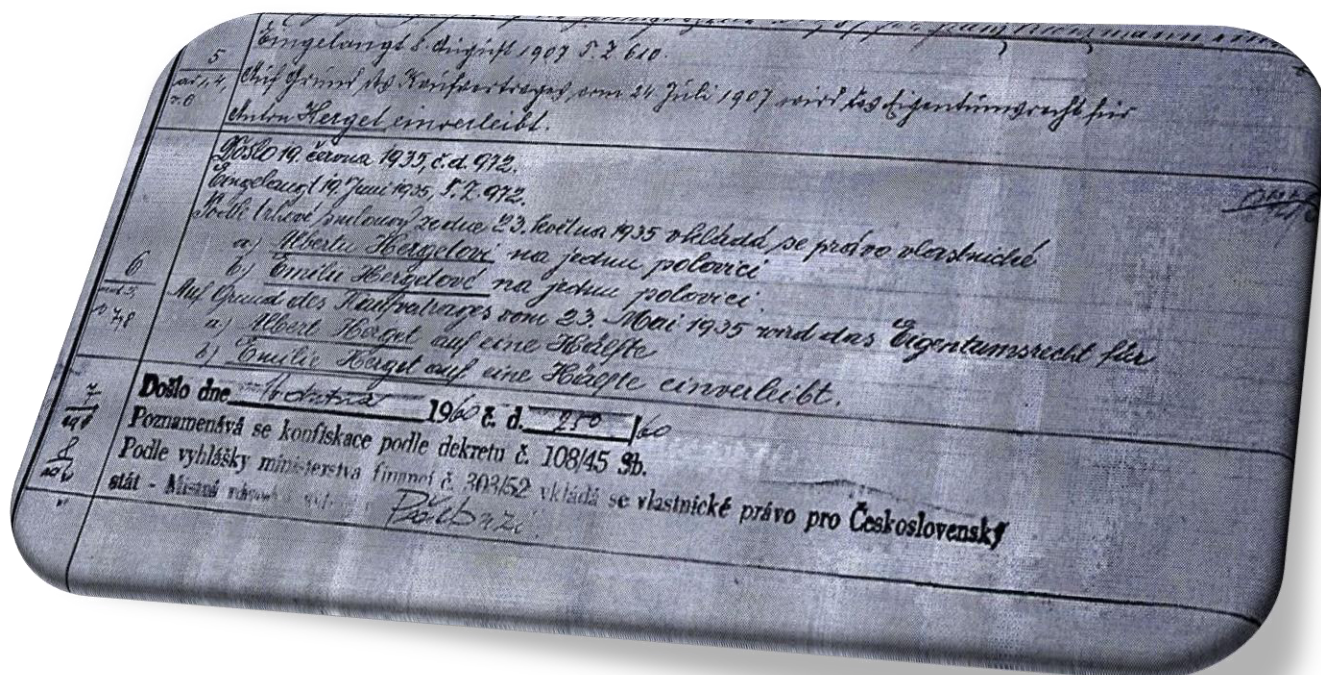 5
Eingelangt 8. August 1907 T. Z. 610.
Auf Grund des Kaufvertrages vom 24. Juli 1907 wird das Eigentumsrecht für
Anton Herget einverleibt.
Došlo 19. června 1935, č. d. 972.
Eingelangt 19. Juni 1935, T. Z. 972.
Podle trhové smlouvy ze dne 23. května 1935 vkládá se právo vlastnické
a) Albertu Hergetovi na jednu polovici
b) Emilii Hergetové na jednu polovici.
6
Auf Grund des Kaufvertrages vom 23. Mai 1935 wird das Eigentumsrecht für
a) Albert Herget auf eine Hälfte
b) Emilie Herget auf eine Hälfte einverleibt.
7
Došlo dne 1960 č. d. 250/60
Poznamenává se konfiskace podle dekretu č. 108/45 Sb.
8
Podle vyhlášky ministerstva financí č. 303/52 vkládá se vlastnické právo pro Československý
stát - Místní